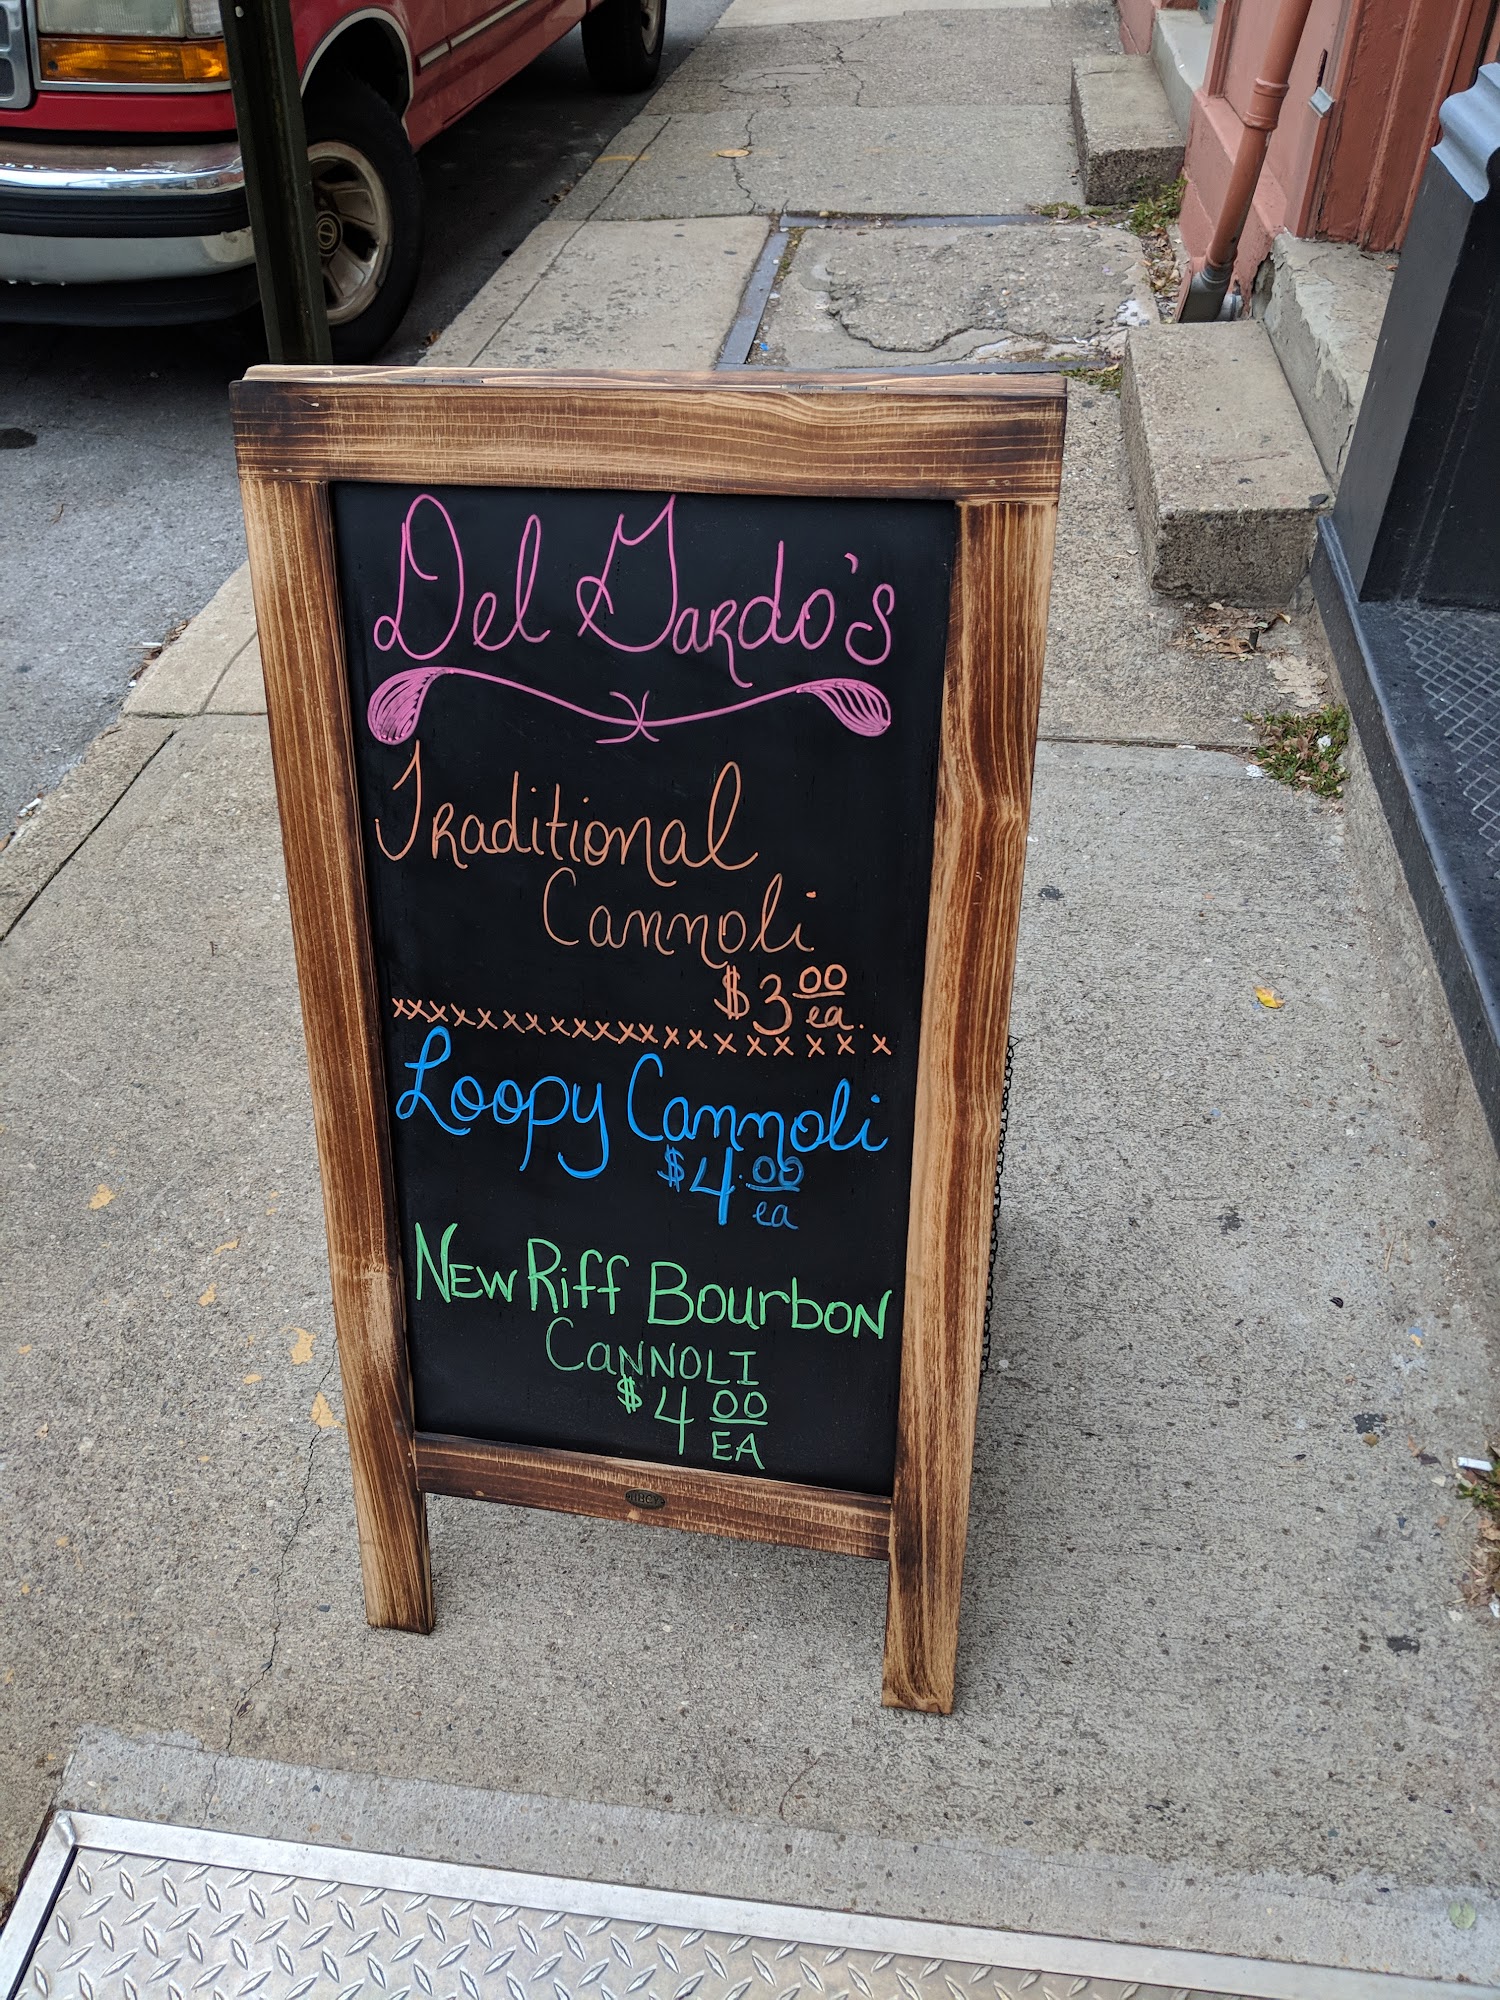 Del Gardo's
Traditional
Cannoli
$3.00 ea.
xxxxxxxxxxxxxxxxxxxx
Loopy Cannoli
$4.00 ea
New Riff Bourbon
CaNNOLI
$4 00 EA